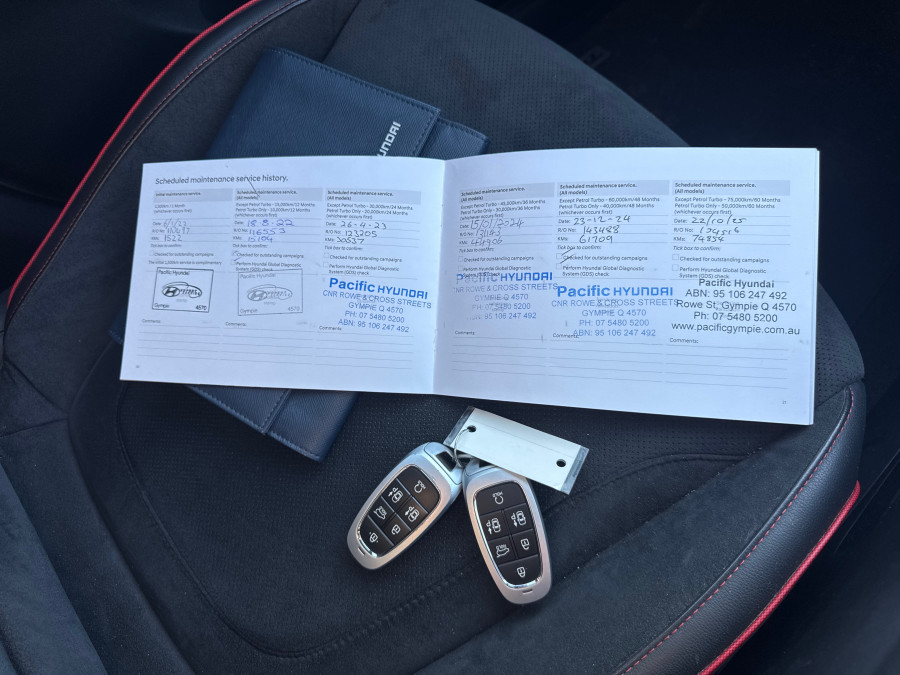 HYUNDAI
Scheduled maintenance service history.
Initial maintenance service.
1,500km/1 Month
(whichever occurs first)
Date:
R/O No:
KMs: 1522
Tick box to confirm:
Checked for outstanding campaigns
Pacific Hyundai
HYUNDAI
Gympie 4570
Comments:
Scheduled maintenance service.
(All models)
Except Petrol Turbo - 15,000km/12 Months
Petrol Turbo Only - 10,000km/12 Months
(whichever occurs first)
Date: 18-8-22
R/O No: 116553
KMs: 15104
Tick box to confirm:
Checked for outstanding campaigns
Perform Hyundai Global Diagnostic
System (GDS) check
Pacific Hyundai
HYUNDAI
Gympie 4570
Comments:
Scheduled maintenance service.
(All models)
Except Petrol Turbo - 30,000km/24 Months
Petrol Turbo Only - 20,000km/24 Months
(whichever occurs first)
Date: 26-4-23
R/O No: 123205
KMs: 30537
Tick box to confirm:
Checked for outstanding campaigns
Perform Hyundai Global Diagnostic
System (GDS) check
Pacific HYUNDAI
CNR ROWE & CROSS STREETS
GYMPIE Q 4570
PH: 07 5480 5200
ABN: 95 106 247 492
Comments:
Scheduled maintenance service.
(All models)
Except Petrol Turbo - 45,000km/36 Months
Petrol Turbo Only - 30,000km/36 Months
(whichever occurs first)
Date:
R/O No:
KMs:
Tick box to confirm:
Checked for outstanding campaigns
Perform Hyundai Global Diagnostic
System (GDS) check
Pacific HYUNDAI
CNR ROWE & CROSS STREETS
GYMPIE Q 4570
PH: 07 5480 5200
ABN: 95 106 247 492
Comments:
Scheduled maintenance service.
(All models)
Except Petrol Turbo - 60,000km/48 Months
Petrol Turbo Only - 40,000km/48 Months
(whichever occurs first)
Date: 23-12-24
R/O No: 143488
KMs: 61709
Tick box to confirm:
Checked for outstanding campaigns
Perform Hyundai Global Diagnostic
System (GDS) check
Pacific HYUNDAI
CNR ROWE & CROSS STREETS
GYMPIE Q 4570
PH: 07 5480 5200
ABN: 95 106 247 492
Comments:
Scheduled maintenance service.
(All models)
Except Petrol Turbo - 75,000km/60 Months
Petrol Turbo Only - 50,000km/60 Months
(whichever occurs first)
Date: 22/10/25
R/O No:
KMs: 74834
Tick box to confirm:
Checked for outstanding campaigns
Perform Hyundai Global Diagnostic
System (GDS) check
Pacific Hyundai
ABN: 95 106 247 492
Rowe St, Gympie Q 4570
Ph: 07 5480 5200
www.pacificgympie.com.au
Comments: